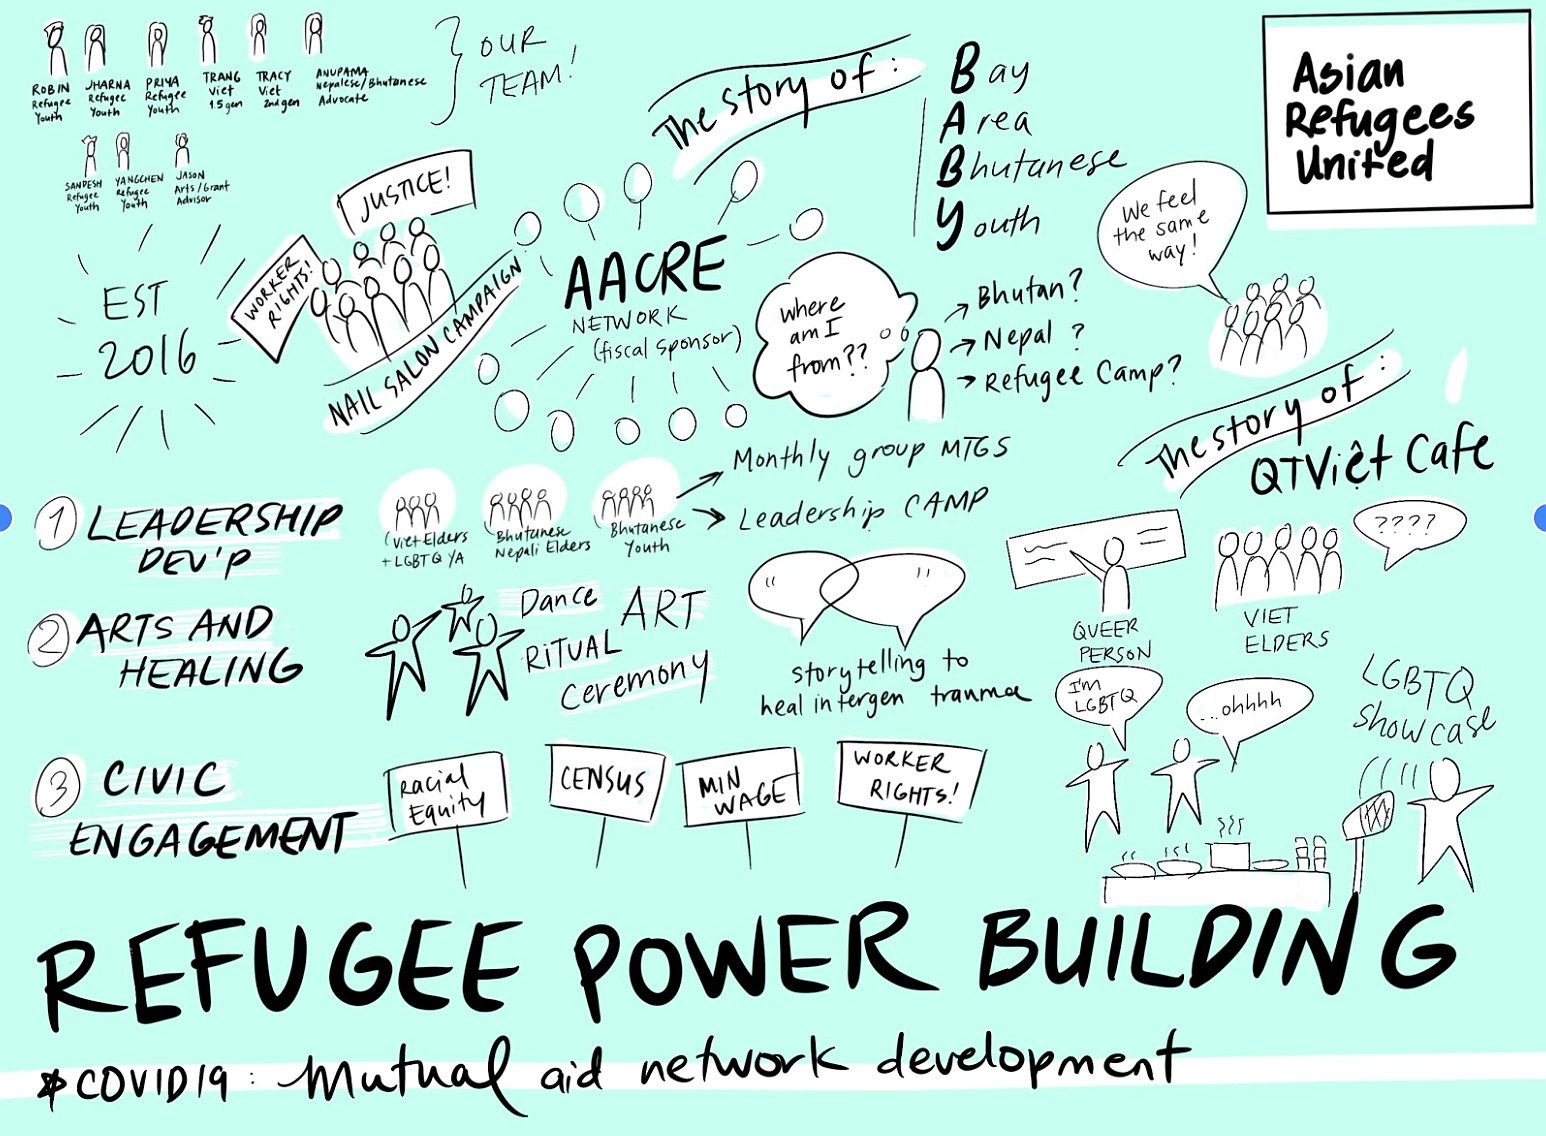 ROBIN
Refugee
Youth
JHARNA
Refugee
Youth
PRIYA
Refugee
Youth
TRANG
Viet
1.5 gen
TRACY
Viet
2nd gen
ANUPAMA
Nepalese/Bhutanese
Advocate
OUR
TEAM!
SANDESH
Refugee
Youth
YANGCHEN
Refugee
Youth
JASON
Arts/Grant
Advisor
The story of:
Bay
Area
Bhutanese
Youth
Asian
Refugees
United
EST
2016
JUSTICE!
WORKER
RIGHTS!
NAIL SALON CAMPAIGN
AACRE
NETWORK
(fiscal sponsor)
where
am I
from??
Bhutan?
Nepal?
Refugee Camp?
We feel
the same
way!
The story of:
QTViệt Cafe
1 LEADERSHIP
DEV'P
Viet Elders
+ LGBTQ YA
Bhutanese
Nepali Elders
Bhutanese
Youth
Monthly group MTGS
Leadership CAMP
QUEER
PERSON
VIET
ELDERS
????
2 ARTS AND
HEALING
Dance
ART
RITUAL
Ceremony
" "
storytelling to
heal intergen trauma
I'm
LGBTQ
...ohhhh
LGBTQ
showcase
3 CIVIC
ENGAGEMENT
Racial
Equity
CENSUS
MIN
WAGE
WORKER
RIGHTS!
REFUGEE POWER BUILDING
*COVID19: Mutual aid network development